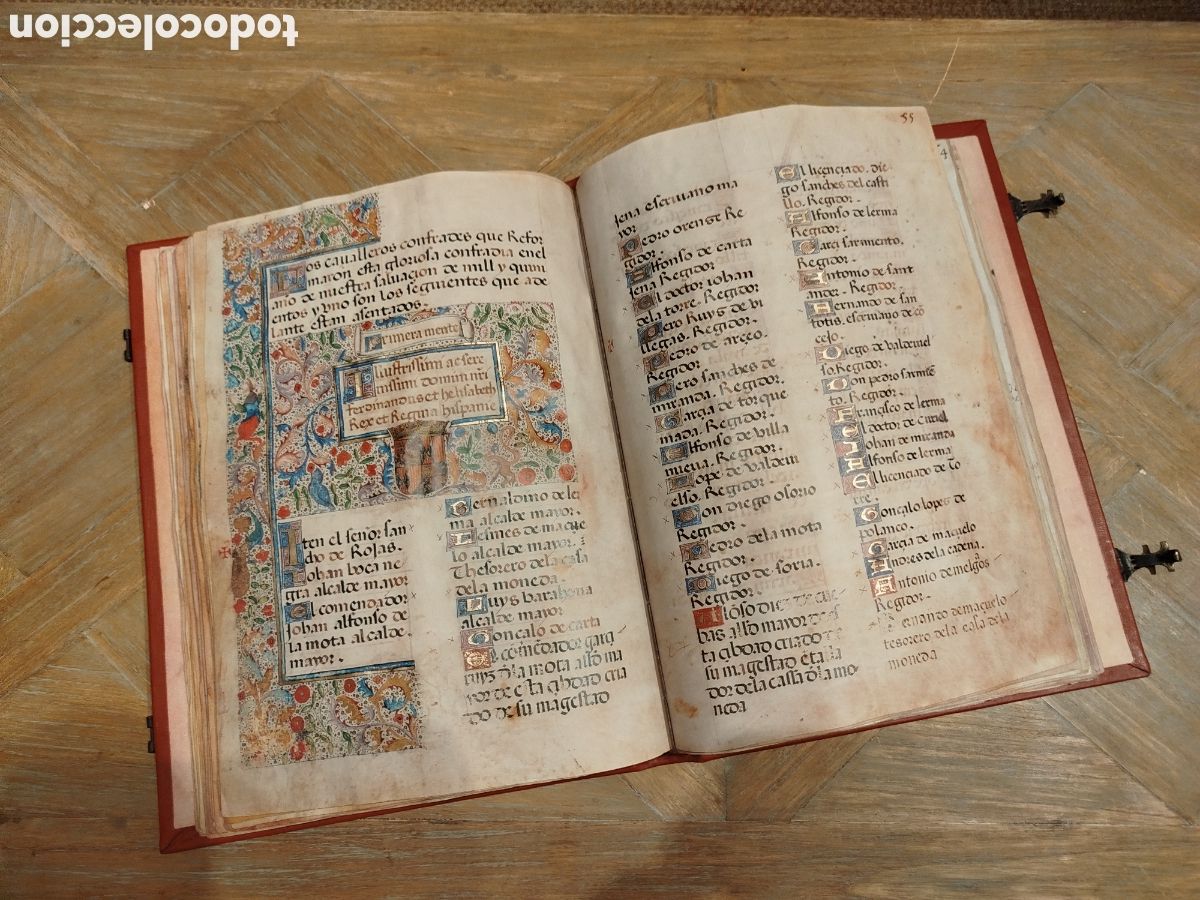 todocoleccion
Los cavalleros confrades que Refor
maron esta gloriosa confradia enel
año de nuestra saluacion de mill y quini
entos y vno son los seguientes que ade
lante estan asentados.
Primera mente
Illustrissimi ac sere
nissimi domini nri
Ferdinandus et helisabeth
Rex et Regina hispanie
Iten el señor san
cho de Rojas.
Iohan boca ne
gra alcalde mayor
El comendador
Johan alfonso de
la mota alcalde
mayor.
Bernaldino de ler
ma alcalde mayor.
lo alcalde mayor.
Thesorero dela casa
de la moneda.
Ruys barahona
alcalde mayor
Gonçalo de carta
El comēdador garçi
ruyz đ la mota alſđ ma
yor de esta çibdad cria
do de su magestad
55
jena escriuano ma
yor
Pedro orenge Re
gidor.
Alfonso de carta
jena Regidor
El doctor iohan
dela torre. Regidor
Pero Ruys de vi
llegas. Regidor.
Pedro de arçeo.
Regidor
Pero sanches de
miranda. Regidor.
Garçia de torque
mada. Regidor.
Alfonso de villa
nueua. Regidor.
Lope de valdeui
elso. Regidor.
Don diego osorio
Regidor.
Pedro dela mota
Regidor.
Diego de soria.
Regidor.
Alōso diez de cue
bas alſđo mayor de es
ta çibdad criado de
su magestad
dor de la cassa đ la mo
neda
El licenciado. die
go sanches del casti
llo. Regidor.
Alfonso de lerma
Regidor.
Garçi sarmento.
Regidor.
Antonio de sant
ander. Regidor.
Bernando de san
totis. escriuano de cō
cejo.
Diego de valdeuiel
so. Regidor.
Don pedro sarmiēt
to. Regidor.
Françisco de lerma
El doctor de Curiel
Johan de miranda
Alfonso de lerma
El licenciado de to
rre.
Gonçalo lopes de
polanco.
Garçia de maçuelo
Andres de la cadena.
Antonio de melgosos
Regidor.
Fernando de maçuelo
tesorero de la casa de la
moneda